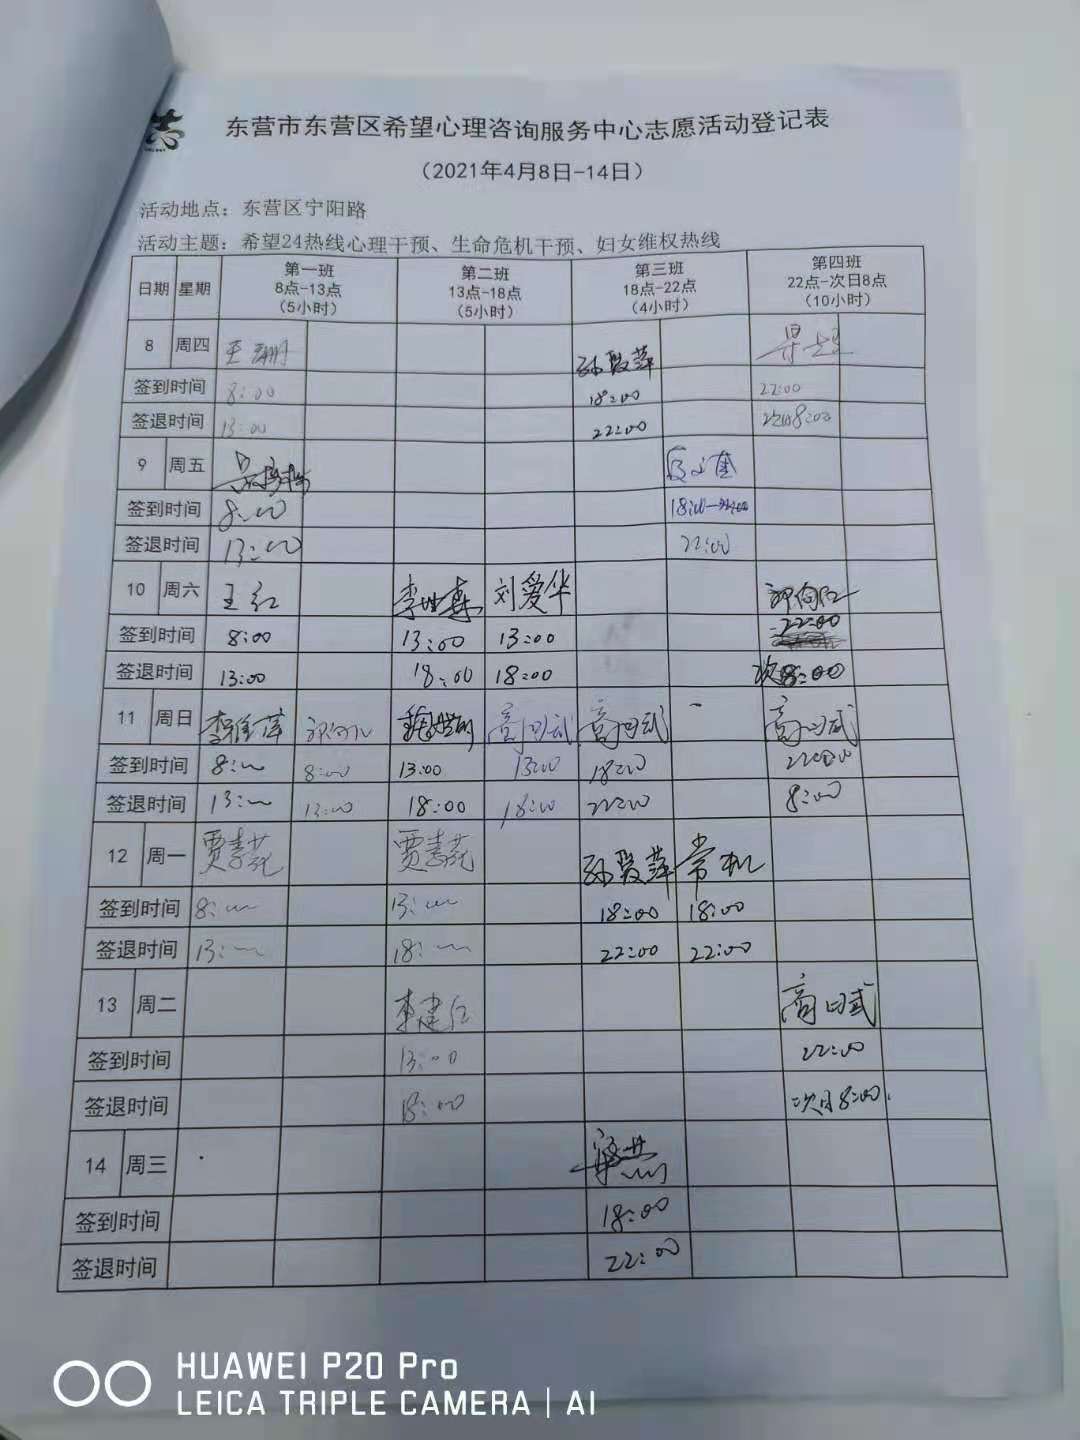 东营市东营区希望心理咨询服务中心志愿活动登记表
（2021年4月8日-14日）
活动地点：东营区宁阳路
活动主题：希望24热线心理干预、生命危机干预、妇女维权热线
日期 星期 第一班 第二班 第三班 第四班
8点-13点 13点-18点 18点-22点 22点-次日8点
（5小时） （5小时） （4小时） （10小时）
8 周四 王 孙 萍
签到时间 8:00 18:00 22:00
签退时间 13:00 22:00 次日8:00
9 周五
签到时间 8:00 18:00
签退时间 13:00 22:00
10 周六 王红 李 刘爱华
签到时间 8:00 13:00 13:00 22:00
签退时间 13:00 18:00 18:00 次8:00
11 周日 李 萍 高 高 高
签到时间 8:00 8:00 13:00 13:00 18:00 22:00
签退时间 13:00 13:00 18:00 18:00 22:00 8:00
12 周一 贾 贾 孙 萍 常
签到时间 8: 13: 18:00 18:00
签退时间 13: 18: 22:00 22:00
13 周二 李建 高
签到时间 13:00 22:00
签退时间 18:00 次日8:00
14 周三
签到时间 18:00
签退时间 22:00
HUAWEI P20 Pro
LEICA TRIPLE CAMERA | AI